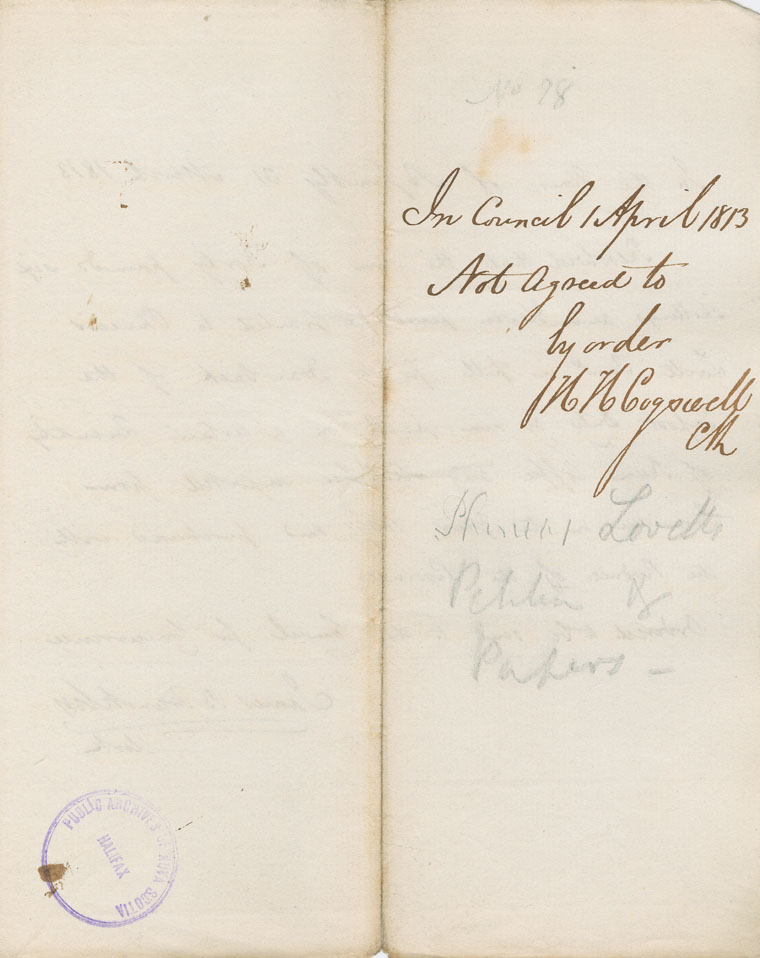 No 98
In Council 1 April 1813
Not Agreed to
by order
H H Cogswell
Clk
Phineas Lovetts
Petition &
Papers —
PUBLIC ARCHIVES OF NOVA SCOTIA
HALIFAX